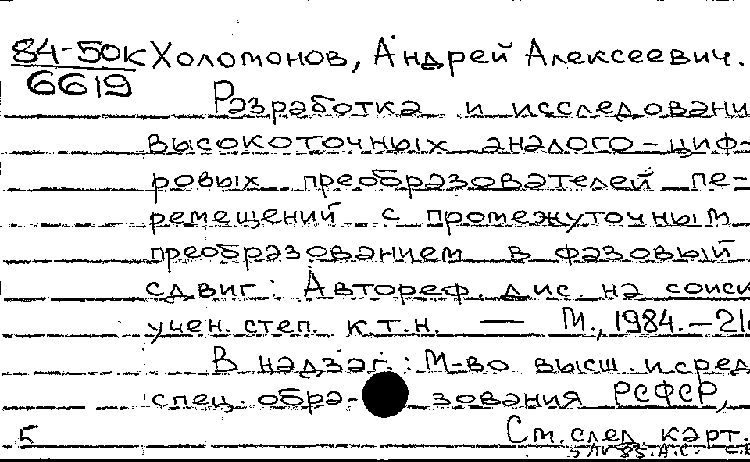 84-50к Холомонов, Андрей Алексеевич.
6619
Разработка и исследовани
высокоточных аналого-циф-
ровых преобразователей пе-
ремещений с промежуточным
преобразованием в фазовый
сдвиг: Автореф. дис. на соиск
учен. степ. к.т.н. — М., 1984.—21
В надзаг.: М-во высш. и сред
спец. обра-зования РСФСР,
5 См. след. карт.